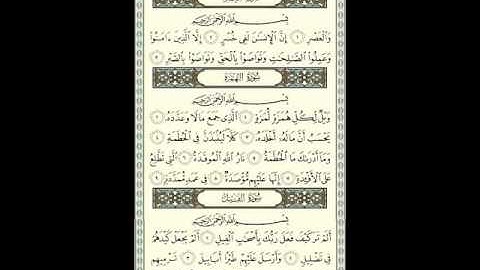 بِسْمِ ٱللَّهِ ٱلرَّحْمَٰنِ ٱلرَّحِيمِ
وَٱلْعَصْرِ ١ إِنَّ ٱلْإِنسَٰنَ لَفِى خُسْرٍ ٢ إِلَّا ٱلَّذِينَ ءَامَنُوا۟
وَعَمِلُوا۟ ٱلصَّٰلِحَٰتِ وَتَوَاصَوْا۟ بِٱلْحَقِّ وَتَوَاصَوْا۟ بِٱلصَّبْرِ ٣
سُورَةُ الهُمَزَةِ
بِسْمِ ٱللَّهِ ٱلرَّحْمَٰنِ ٱلرَّحِيمِ
وَيْلٌ لِّكُلِّ هُمَزَةٍ لُّمَزَةٍ ١ ٱلَّذِى جَمَعَ مَالًا وَعَدَّدَهُۥ ٢
يَحْسَبُ أَنَّ مَالَهُۥٓ أَخْلَدَهُۥ ٣ كَلَّا لَيُنۢبَذَنَّ فِى ٱلْحُطَمَةِ ٤
وَمَآ أَدْرَىٰكَ مَا ٱلْحُطَمَةُ ٥ نَارُ ٱللَّهِ ٱلْمُوقَدَةُ ٦ ٱلَّتِى تَطَّلِعُ
عَلَى ٱلْأَفْـِٔدَةِ ٧ إِنَّهَا عَلَيْهِم مُّؤْصَدَةٌ ٨ فِى عَمَدٍ مُّمَدَّدَةٍۭ ٩
سُورَةُ الفِيلِ
بِسْمِ ٱللَّهِ ٱلرَّحْمَٰنِ ٱلرَّحِيمِ
أَلَمْ تَرَ كَيْفَ فَعَلَ رَبُّكَ بِأَصْحَٰبِ ٱلْفِيلِ ١ أَلَمْ يَجْعَلْ كَيْدَهُمْ
فِى تَضْلِيلٍ ٢ وَأَرْسَلَ عَلَيْهِمْ طَيْرًا أَبَابِيلَ ٣ تَرْمِيهِم